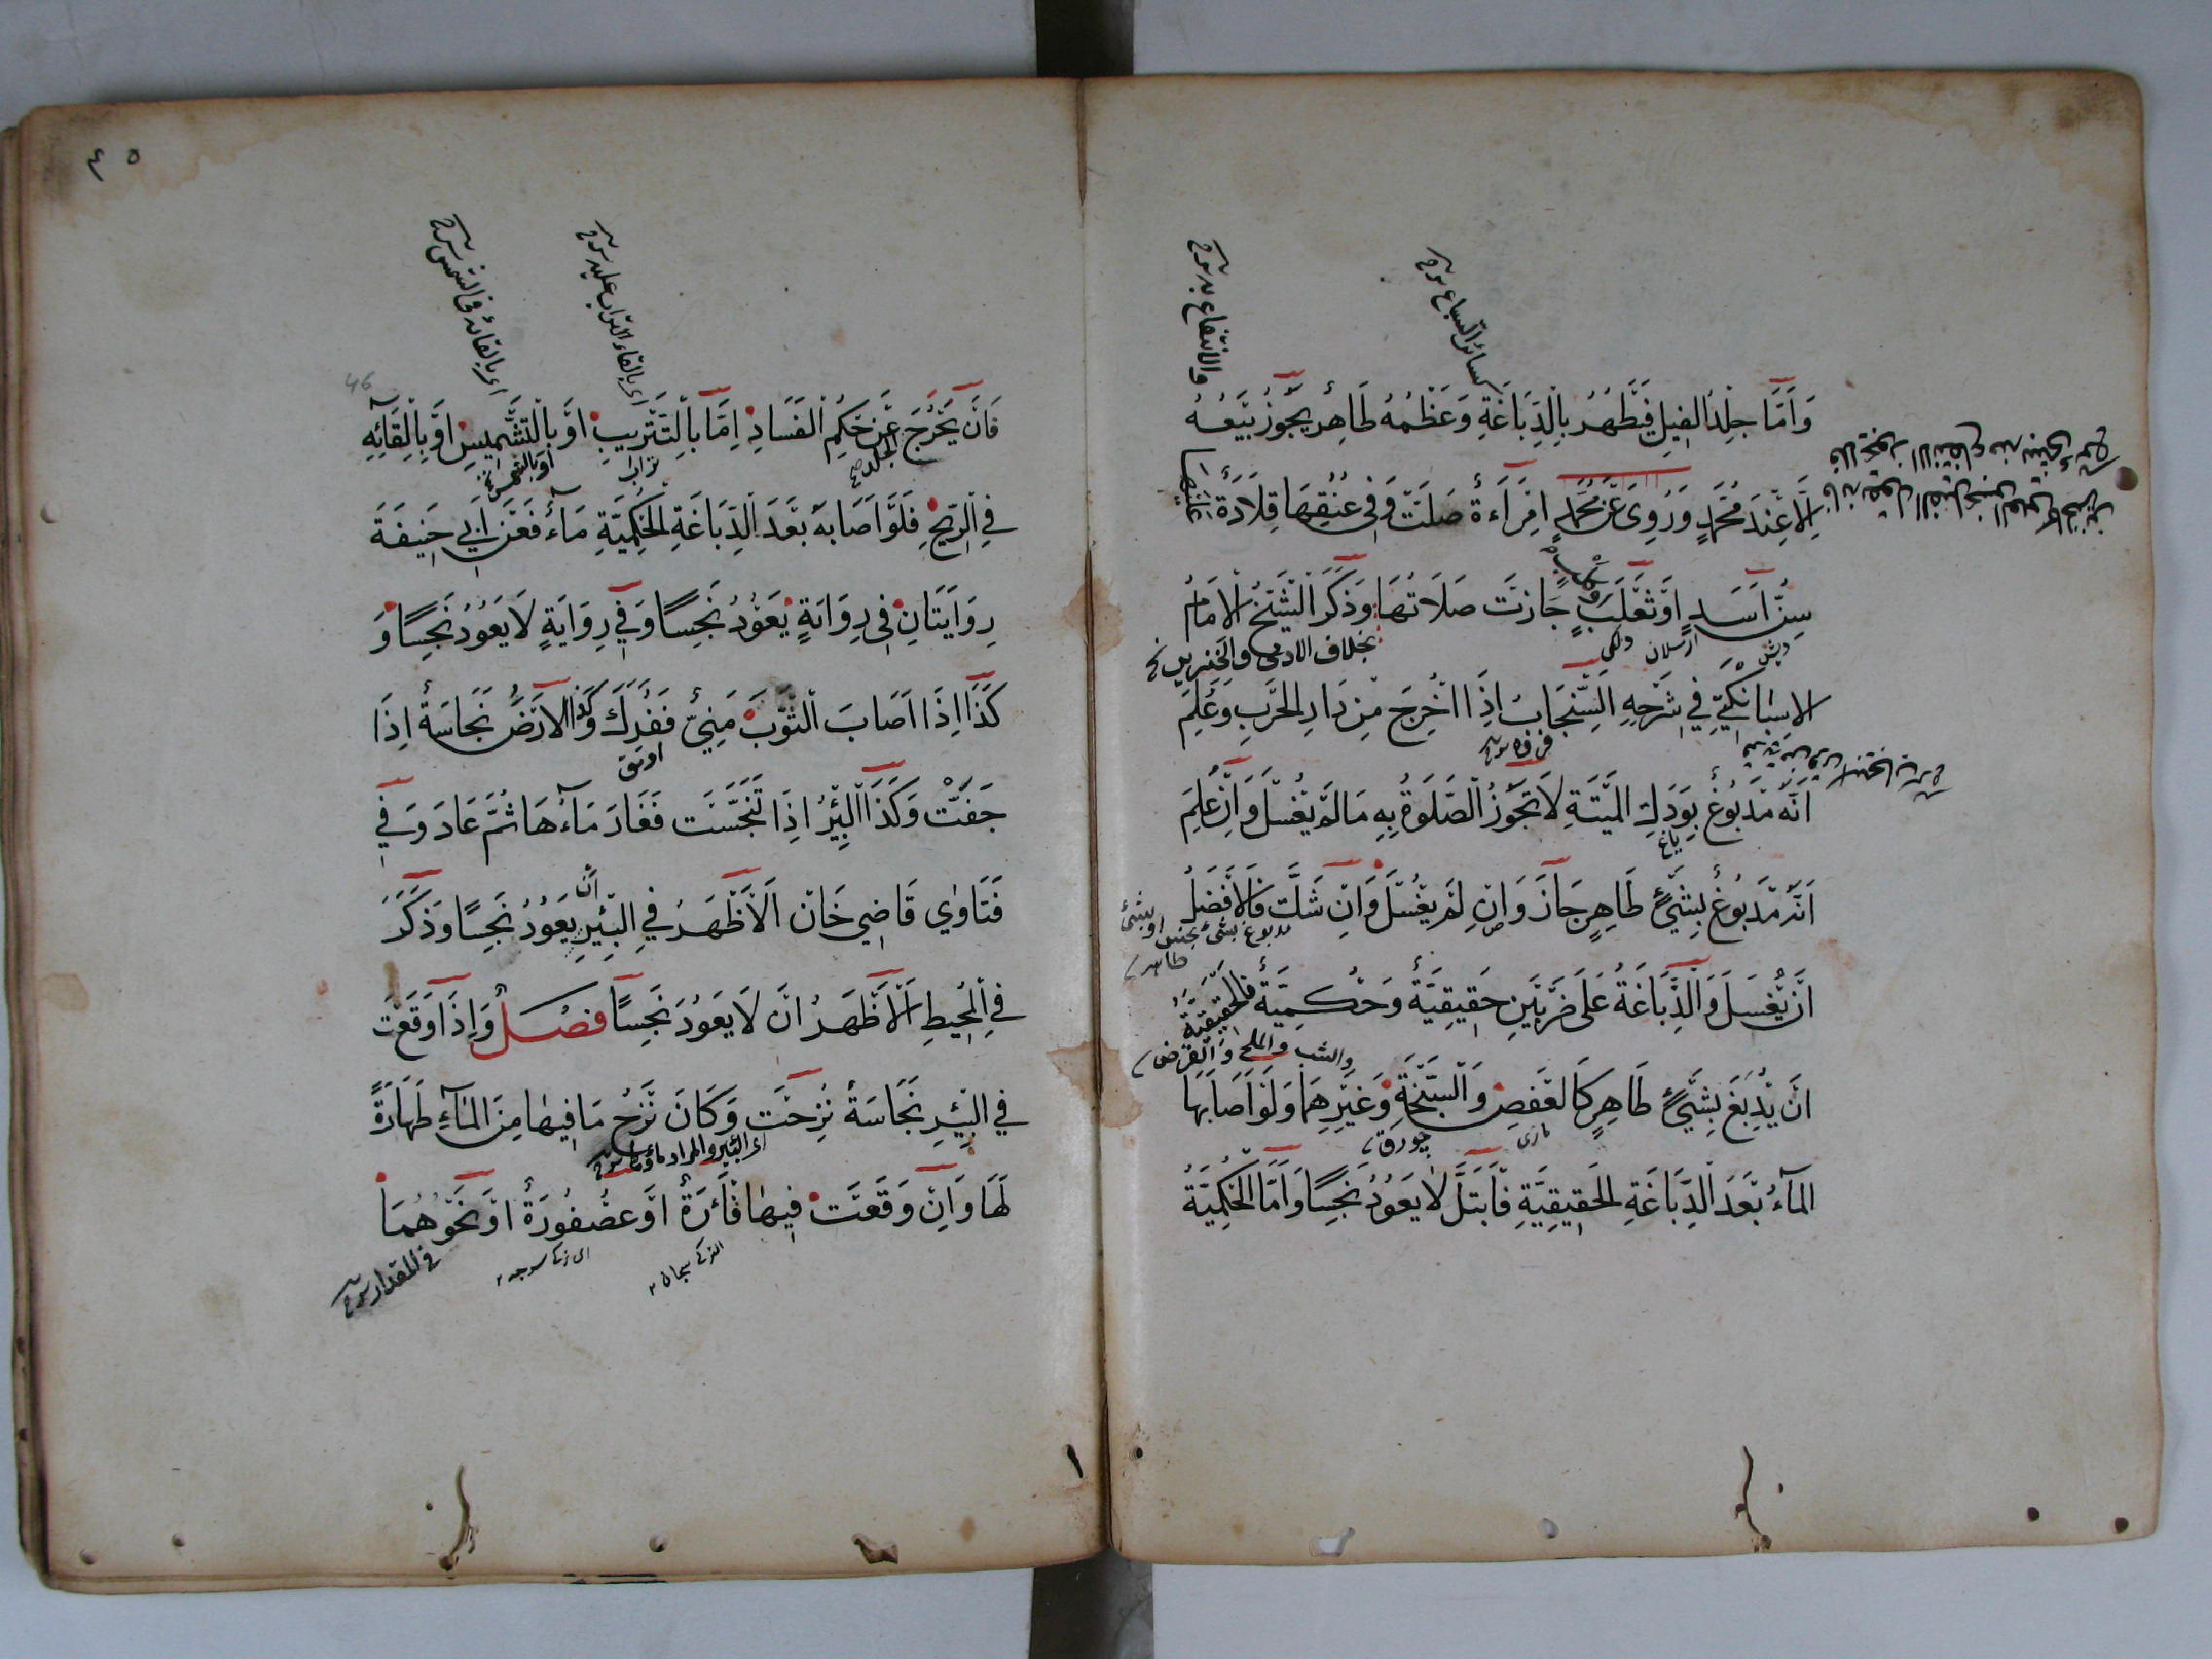 وَاَمَّا جِلْدُ الفِيلِ فَتَطْهُرُ بِالدِّبَاغَةِ وَعَظْمُهُ طَاهِرٌ يَجُوزُ بَيْعُهُ
اِلَّا عِنْدَ مُحَمَّدٍ وَرُوِىَ عَنْ مُحَمَّدٍ اِمْرَاَءةٌ صَلَّتْ وَفِى عُنُقِهَا قِلَادَةٌ
سِنُّ اَسَدٍ اَوْ ثَعْلَبٍ جَازَتْ صَلَاتُهَا وَذَكَرَ الشَّيْخُ الْامَامُ
بخلاف الادمى والخنزير
الاسْبَانِكِتِي فِي شَرْحِهِ السِّنْجَابُ اِذَا اُخْرِجَ مِنْ دَارِ الحَرْبِ وَعُلِمَ
اَنَّهُ مَدْبُوغٌ بِوَدَكِ المَيْتَةِ لَا تَجُوزُ الصَّلٰوةُ بِهِ مَا لَمْ يُغْسَلْ وَاِنْ عُلِمَ
اَنَّهُ مَدْبُوغٌ بِشَيْءٍ طَاهِرٍ جَازَ وَاِنْ لَمْ يُغْسَلْ وَاِنْ شَكَّ فَالْاَفْضَلُ
اَنْ يُغْسَلَ وَالدِّبَاغَةُ عَلَى ضَرْبَيْنِ حَقِيقِيَّةٌ وَحُكْمِيَّةٌ فَالْحَقِيقِيَّةُ
والشب والملح والقرض
اَنْ يُدْبَغَ بِشَيْءٍ طَاهِرٍ كَالعَفْصِ وَالسَّبْخَةِ وَغَيْرِهِمَا وَلَوْ اَصَابَهَا
المَآءُ بَعْدَ الدِّبَاغَةِ الحَقِيقِيَّةِ فَابْتَلَّ لَا يَعُودُ نَجِسًا وَاَمَّا الْحُكْمِيَّةُ
والانتفاع به شرح
كسائر السباع شرح
٤٥
46
اى بالقاء التراب عليه شرح
اى بالقائه فى الشمس شرح
فَاَنْ يَخْرُجَ عَنْ حُكْمِ الفَسَادِ اِمَّا بِالتَّتْرِيبِ اَوْ بِالتَّشْمِيسِ اَوْ بِاِلْقَآئِهِ
فِي الرِّيحِ فَلَوْ اَصَابَهُ بَعْدَ الدِّبَاغَةِ الحُكْمِيَّةِ مَآءٌ فَعَنْ اَبِي حَنِيفَةَ
رِوَايَتَانِ فِى رِوَايَةٍ يَعُودُ نَجِسًا وَفِي رِوَايَةٍ لَا يَعُودُ نَجِسًا وَ
كَذَا اِذَا اَصَابَ الثَّوْبَ مَنِيٌّ فَفُرِكَ وَكَذَا الْاَرْضُ نَجَاسَةٌ اِذَا
جَفَّتْ وَكَذَا الْبِئْرُ اِذَا تَنَجَّسَتْ فَغَارَ مَآءُهَا ثُمَّ عَادَ وَفِي
فَتَاوٰى قَاضِي خَانْ اَلْاَظْهَرُ فِي البِّئْرِ اَنْ يَعُودُ نَجِسًا وَذَكَرَ
فِي الْمُحِيطِ اَلْاَظْهَرُ اَنْ لَا يَعُودَ نَجِسًا فَصْلٌ وَاِذَا وَقَعَتْ
فِي البِئْرِ نَجَاسَةٌ نُزِحَتْ وَكَانَ نَزْحُ مَا فِيهَا مِنَ المَآءِ طَهَارَةً
لَهَا وَاِنْ وَقَعَتْ فِيهَا فَأْرَةٌ اَوْ عُصْفُورَةٌ اَوْ نَحْوُهُمَا
فى المقدار شرح